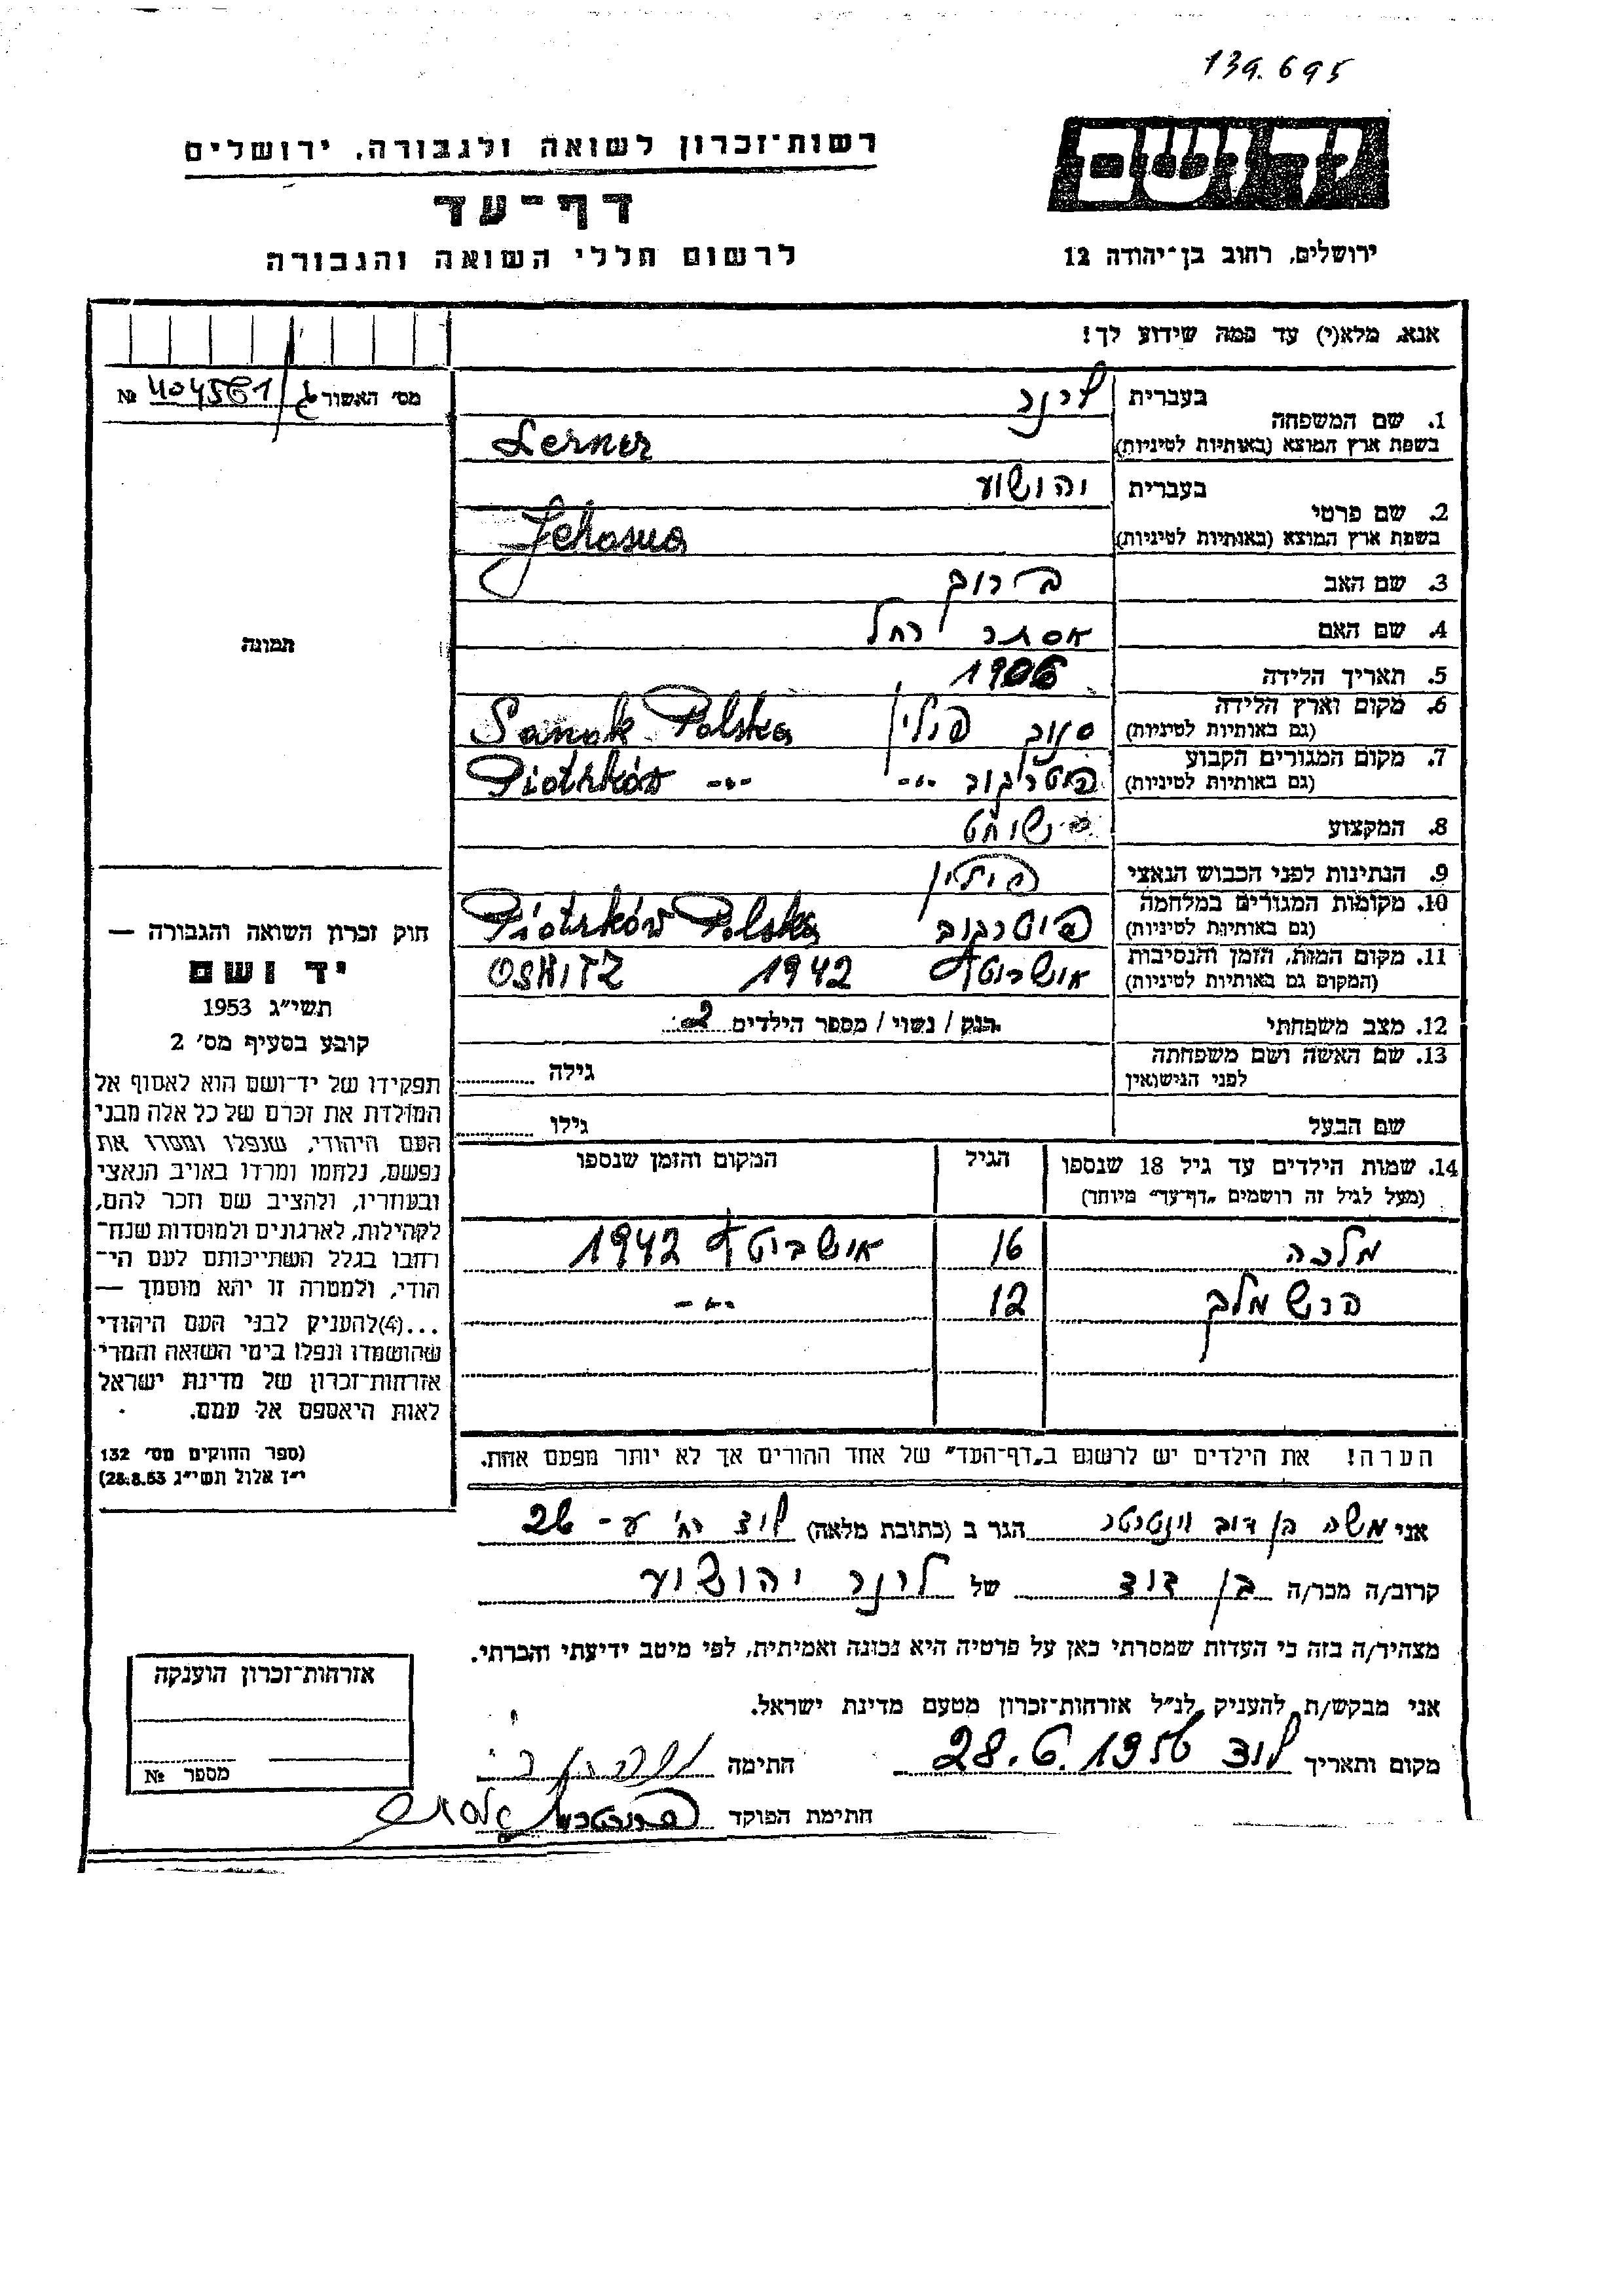 139.695
יד ושם
רשות־זכרון לשואה ולגבורה, ירושלים
דף־עד
לרשום חללי השואה והגבורה
ירושלים, רחוב בן־יהודה 12
אנא, מלא(י) עד כמה שידוע לך!
מס׳ האשור № 404561
1. שם המשפחה
בעברית לרנר
בשפת ארץ המוצא (באותיות לטיניות) Lerner
2. שם פרטי
בעברית יהושוע
בשפת ארץ המוצא (באותיות לטיניות) Jehosua
3. שם האב ברוך
4. שם האם אסתר רחל
5. תאריך הלידה 1906
6. מקום וארץ הלידה
(גם באותיות לטיניות) סנוק פולין Sanok Polska
7. מקום המגורים הקבוע
(גם באותיות לטיניות) פיוטרקוב -"- Piotrków -"-
8. המקצוע
9. הנתינות לפני הכבוש הנאצי פולין
10. מקומות המגורים במלחמה
(גם באותיות לטיניות) פיוטרקוב Piotrków Polska
11. מקום המות, הזמן והנסיבות
(המקום גם באותיות לטיניות) אושביטץ 1942 OSHITZ
12. מצב משפחתי רוק / נשוי / מספר הילדים 2
13. שם האשה ושם משפחתה
לפני הנישואין גילה
שם הבעל גילו
14. שמות הילדים עד גיל 18 שנספו הגיל המקום והזמן שנספו
(מעל לגיל זה רושמים „דף־עד״ מיוחד)
מלכה 16 אושביטץ 1942
הרש מלך 12 -"-
הערה! את הילדים יש לרשום ב„דף־העד״ של אחד ההורים אך לא יותר מפעם אחת.
תמונה
חוק זכרון השואה והגבורה —
יד ושם
תשי״ג 1953
קובע בסעיף מס׳ 2
תפקידו של יד־ושם הוא לאסוף אל
המולדת את זכרם של כל אלה מבני
העם היהודי, שנפלו ומסרו את
נפשם, נלחמו ומרדו באויב הנאצי
ובעוזריו, ולהציב שם וזכר להם,
לקהילות, לארגונים ולמוסדות שנח־
רבו בגלל השתייכותם לעם הי־
הודי, ולמטרה זו יהא מוסמך —
...(4) להעניק לבני העם היהודי
שהושמדו ונפלו בימי השואה והמרי
אזרחות־זכרון של מדינת ישראל
לאות היאספם אל עמם.
(ספר החוקים מס׳ 132
י״ז אלול תשי״ג 28.8.53)
אני משה בן דוב הגר ב (כתובת מלאה) לוד רח׳
קרוב/ה מכר/ה בן דוד של לרנר יהושוע
מצהיר/ה בזה כי העדות שמסרתי כאן על פרטיה היא נכונה ואמיתית, לפי מיטב ידיעתי והכרתי.
אני מבקש/ת להעניק לנ״ל אזרחות־זכרון מטעם מדינת ישראל.
מקום ותאריך לוד 28.6.1956 חתימה
חתימת הפוקד
אזרחות־זכרון הוענקה
מספר №